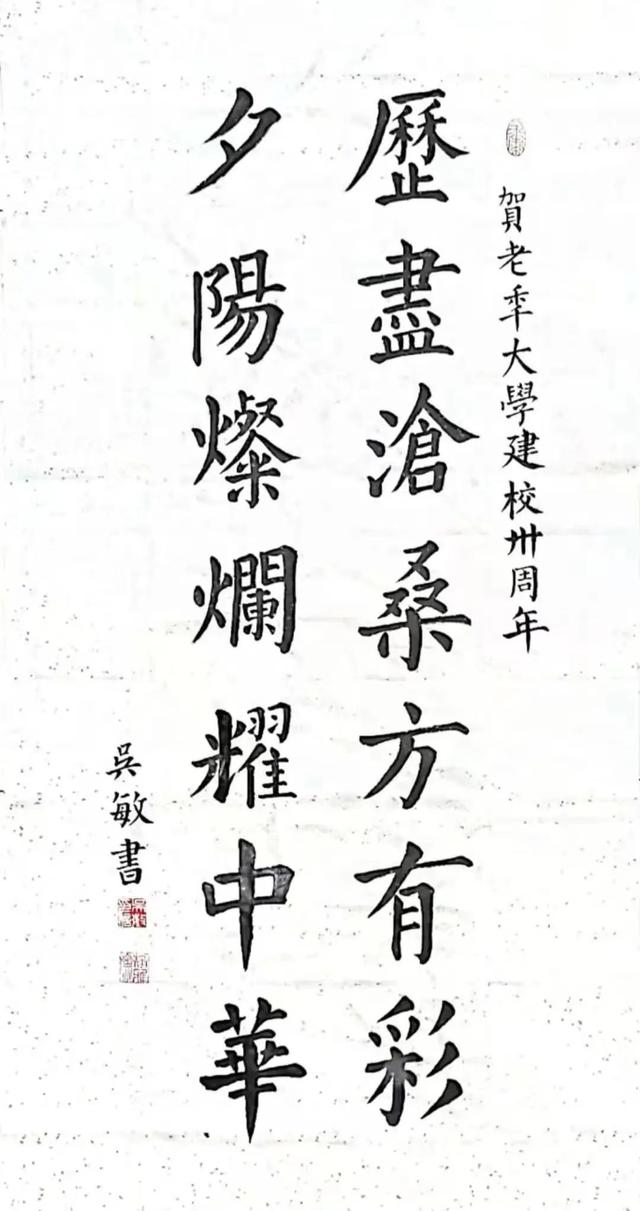 賀老年大學建校卅周年
歷盡滄桑方有彩
夕陽燦爛耀中華
吳敏書